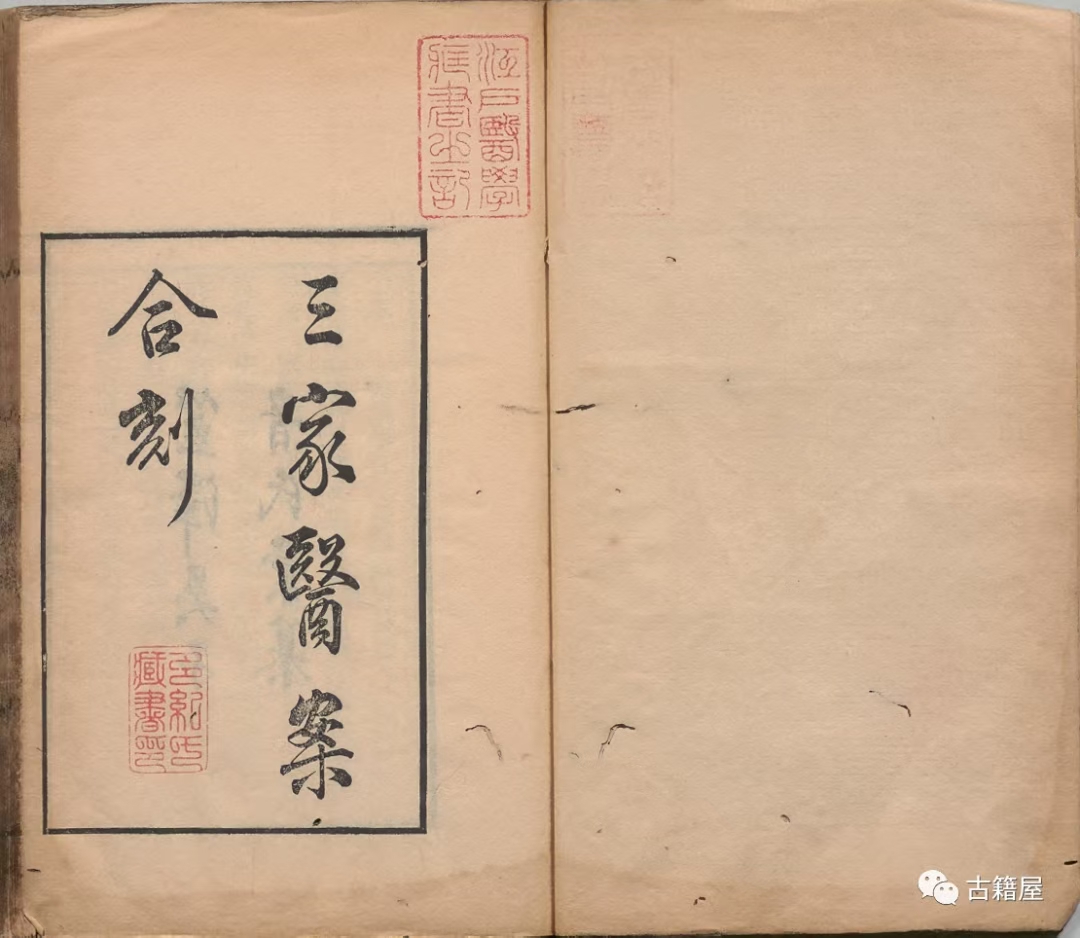 三家醫案
合刻
江戶醫學
藏書之記
藏書印
古籍屋